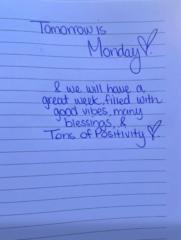 Tomorrow is
Monday
& we will have a
great week, filled with
good vibes, many
blessings, &
Tons of Positivity